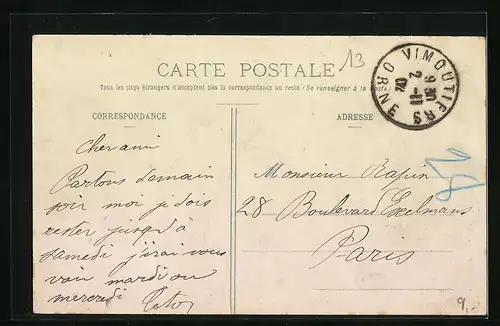 13
CARTE POSTALE
Tous les pays étrangers n'acceptent pas la correspondance au recto (Se renseigner à la Poste)
VIMOUTIERS
9 30
2 - 11
07
ORNE
CORRESPONDANCE
ADRESSE
Cher ami
Partons demain
soir moi je dois
rester jusqu'à
samedi j'irai vous
voir mardi ou
mercredi
Monsieur Rapin
28 Boulevard Exelmans
Paris
9.-